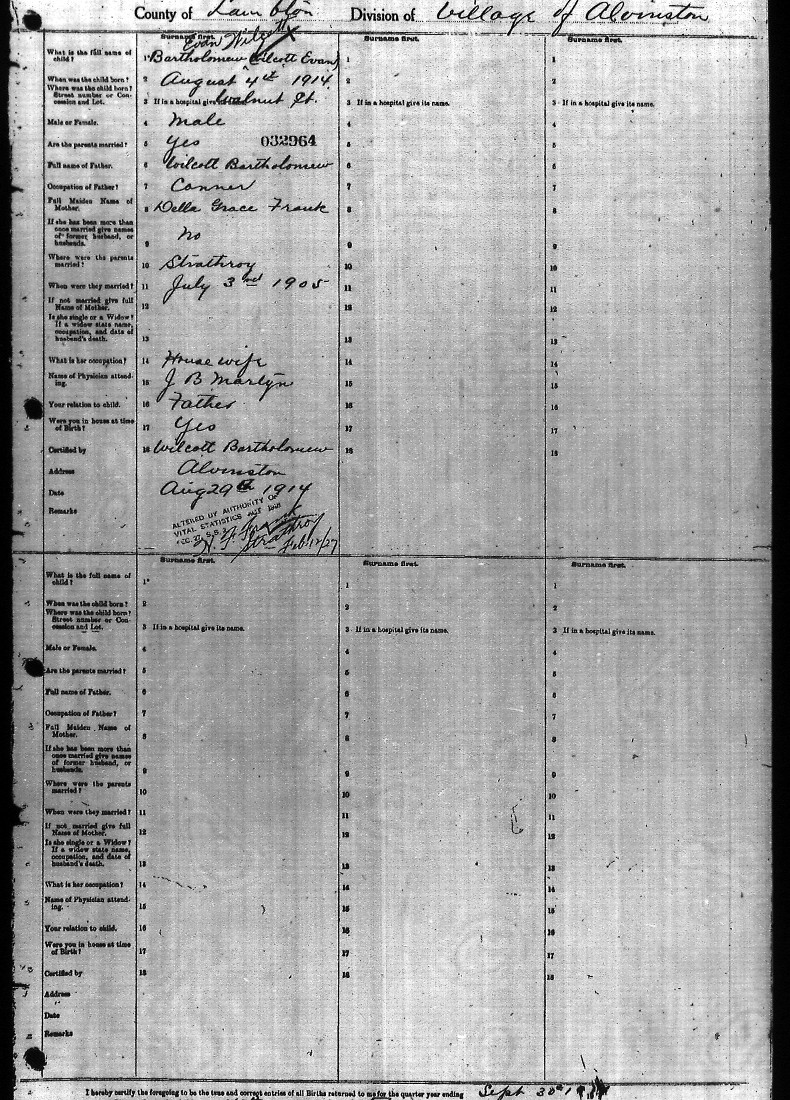 County of Lambton Division of Village of Alvinston
Surname first. Surname first. Surname first.
Evan Wilcott
What is the full name of child? 1 Bartholomew (Wilcott Evan) 1 1
When was the child born? 2 August 4th 1914. 2 2
Where was the child born? Street number or Concession and Lot. 3 If in a hospital give its name. Walnut St. 3 If in a hospital give its name. 3 If in a hospital give its name.
Male or Female. 4 Male 4 4
Are the parents married? 5 Yes 032964 5 5
Full name of Father. 6 Wilcott Bartholomew 6 6
Occupation of Father? 7 Canner 7 7
Full Maiden Name of Mother. 8 Della Grace Frank 8 8
If she has been more than once married give names of former husband, or husbands. 9 No 9 9
Where were the parents married? 10 Strathroy 10 10
When were they married? 11 July 3rd 1905 11 11
If not married give full Name of Mother. 12 12 12
Is she single or a Widow? If a widow state name, occupation, and date of husband's death. 13 13 13
What is her occupation? 14 House wife 14 14
Name of Physician attending. 15 J B Martyn 15 15
Your relation to child. 16 Father 16 16
Were you in house at time of Birth? 17 Yes 17 17
Certified by 18 Wilcott Bartholomew 18 18
Address Alvinston
Date Aug 29th 1914
Remarks
ALTERED BY AUTHORITY OF
VITAL STATISTICS ACT
H. F. Frank
Strathroy
Feb 12/27
Surname first. Surname first. Surname first.
What is the full name of child? 1 1 1
When was the child born? 2 2 2
Where was the child born? Street number or Concession and Lot. 3 If in a hospital give its name. 3 If in a hospital give its name. 3 If in a hospital give its name.
Male or Female. 4 4 4
Are the parents married? 5 5 5
Full name of Father. 6 6 6
Occupation of Father? 7 7 7
Full Maiden Name of Mother. 8 8 8
If she has been more than once married give names of former husband, or husbands. 9 9 9
Where were the parents married? 10 10 10
When were they married? 11 11 11
If not married give full Name of Mother. 12 12 12
Is she single or a Widow? If a widow state name, occupation, and date of husband's death. 13 13 13
What is her occupation? 14 14 14
Name of Physician attending. 15 15 15
Your relation to child. 16 16 16
Were you in house at time of Birth? 17 17 17
Certified by 18 18 18
Address
Date
Remarks
I hereby certify the foregoing to be the true and correct entries of all Births returned to me for the quarter year ending Sept 30th